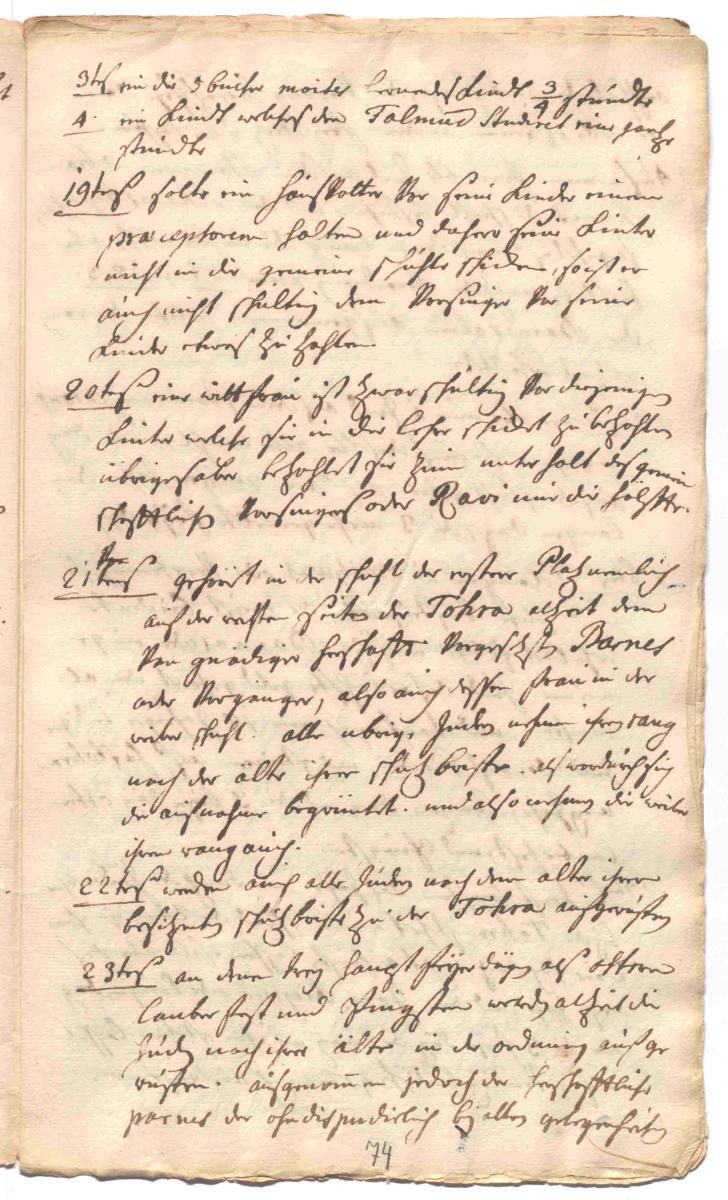 3tes ein die 5 bücher moises lernendes Kindt 3/4 stundte
4. ein Kindt welches den Talmud Studiret eine gantze
stundte
19tens solte ein haus Vatter Vor seine Kinder einen
praeceptorem halten und dahero seine Kinter
nicht in die gemeine schuhle schiken, so ist er
auch nicht schultig dem Vorsinger Vor seine
Kinder etwas zu zahlen.
20tens eine wittfrau ist zwar schultig Vor diejenigen
Kinter welche sie in die lehr schiket zu bezahlen
übriges aber bezahlet sie zum unterhalt des gemein
schafftlichen Vorsingers oder Ravi nur die hälffte.
21tens gehöret in der schuhl der erstere Platz nemlich
auf der rechten seiten der Tohra alzeit dem
Von gnädiger herschafft Vorgesetzten Barnes
oder Vorgänger, also auch dessen frau in der
weiber schuhl. alle übrige Juden nehmen ihren rang
nach der älte ihrer schutz briefe. als wordurch sich
die aufnahme begründet. und also nehmen die weiber
ihren rang auch.
22tens werden auch alle Juden nach dem alter ihrer
besitzenten schutzbriefe zu der Tohra aufgerufen
23tens an denen drey haupt feyer dägen als ostern
lauber fest und Pfingsten werden alzeit die
Juden nach ihrer älte in der ordnung aufge
rufen. ausgenommen jedoch der herschafftliche
parnes der ohndispudirlich bey allen gelegenheiten
74